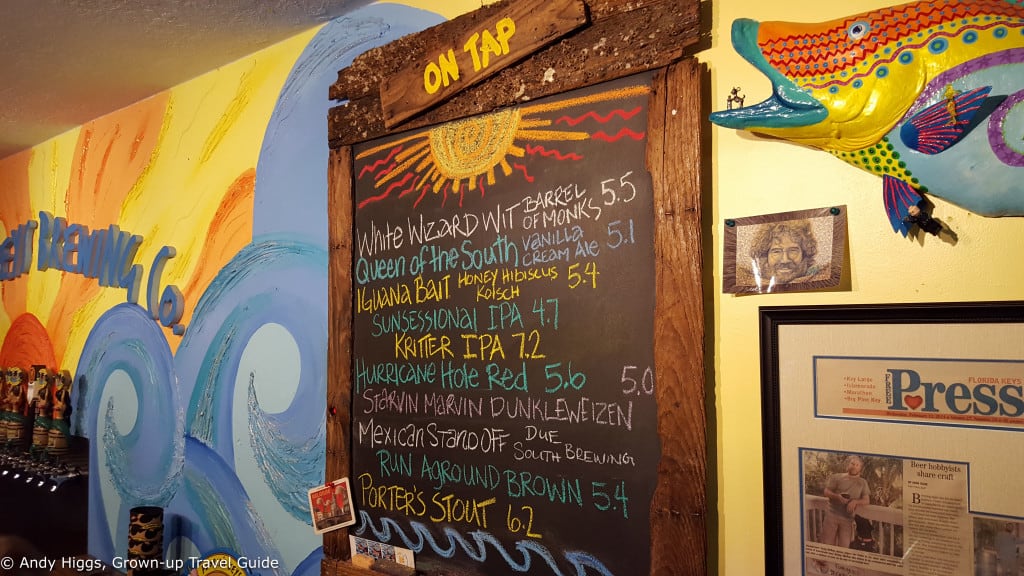 ON TAP
White Wizard Wit BARREL OF MONKS 5.5
Queen of the South Vanilla Cream Ale 5.1
Iguana Bait Honey Hibiscus Kolsch 5.4
Sunsessional IPA 4.7
Kritter IPA 7.2
Hurricane Hole Red 5.6
5.0
Starvin Marvin Dunkleweizen
Mexican Stand Off Due South Brewing
Run Aground Brown 5.4
Porter's Stout 6.2
Brewing Co.
FLORIDA KEYS
Press
• Key Largo
• Islamorada
• Marathon
• Big Pine Key
Beer hobbyists
share craft
© Andy Higgs, Grown-up Travel Guide